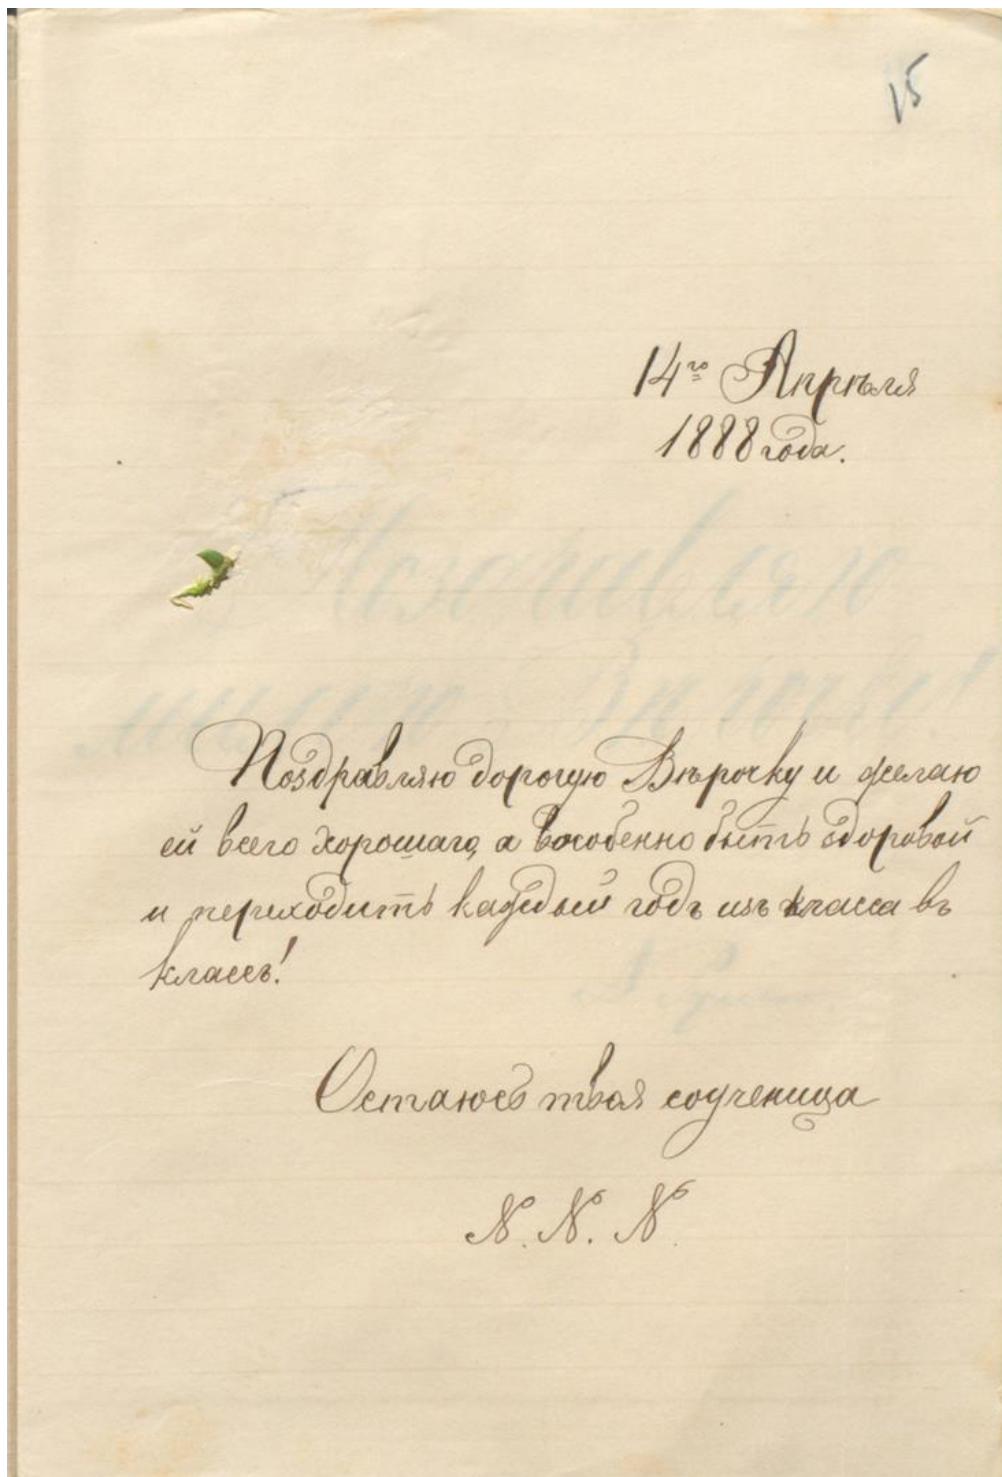 15
14го Апрѣля
1888 года.
Поздравляю дорогую Вѣрочку и желаю
ей всего хорошаго, а вособенно быть здоровой
и переходить каждый годъ изъ класса въ
классъ!
Остаюсь твоя соученица
N. N. N.